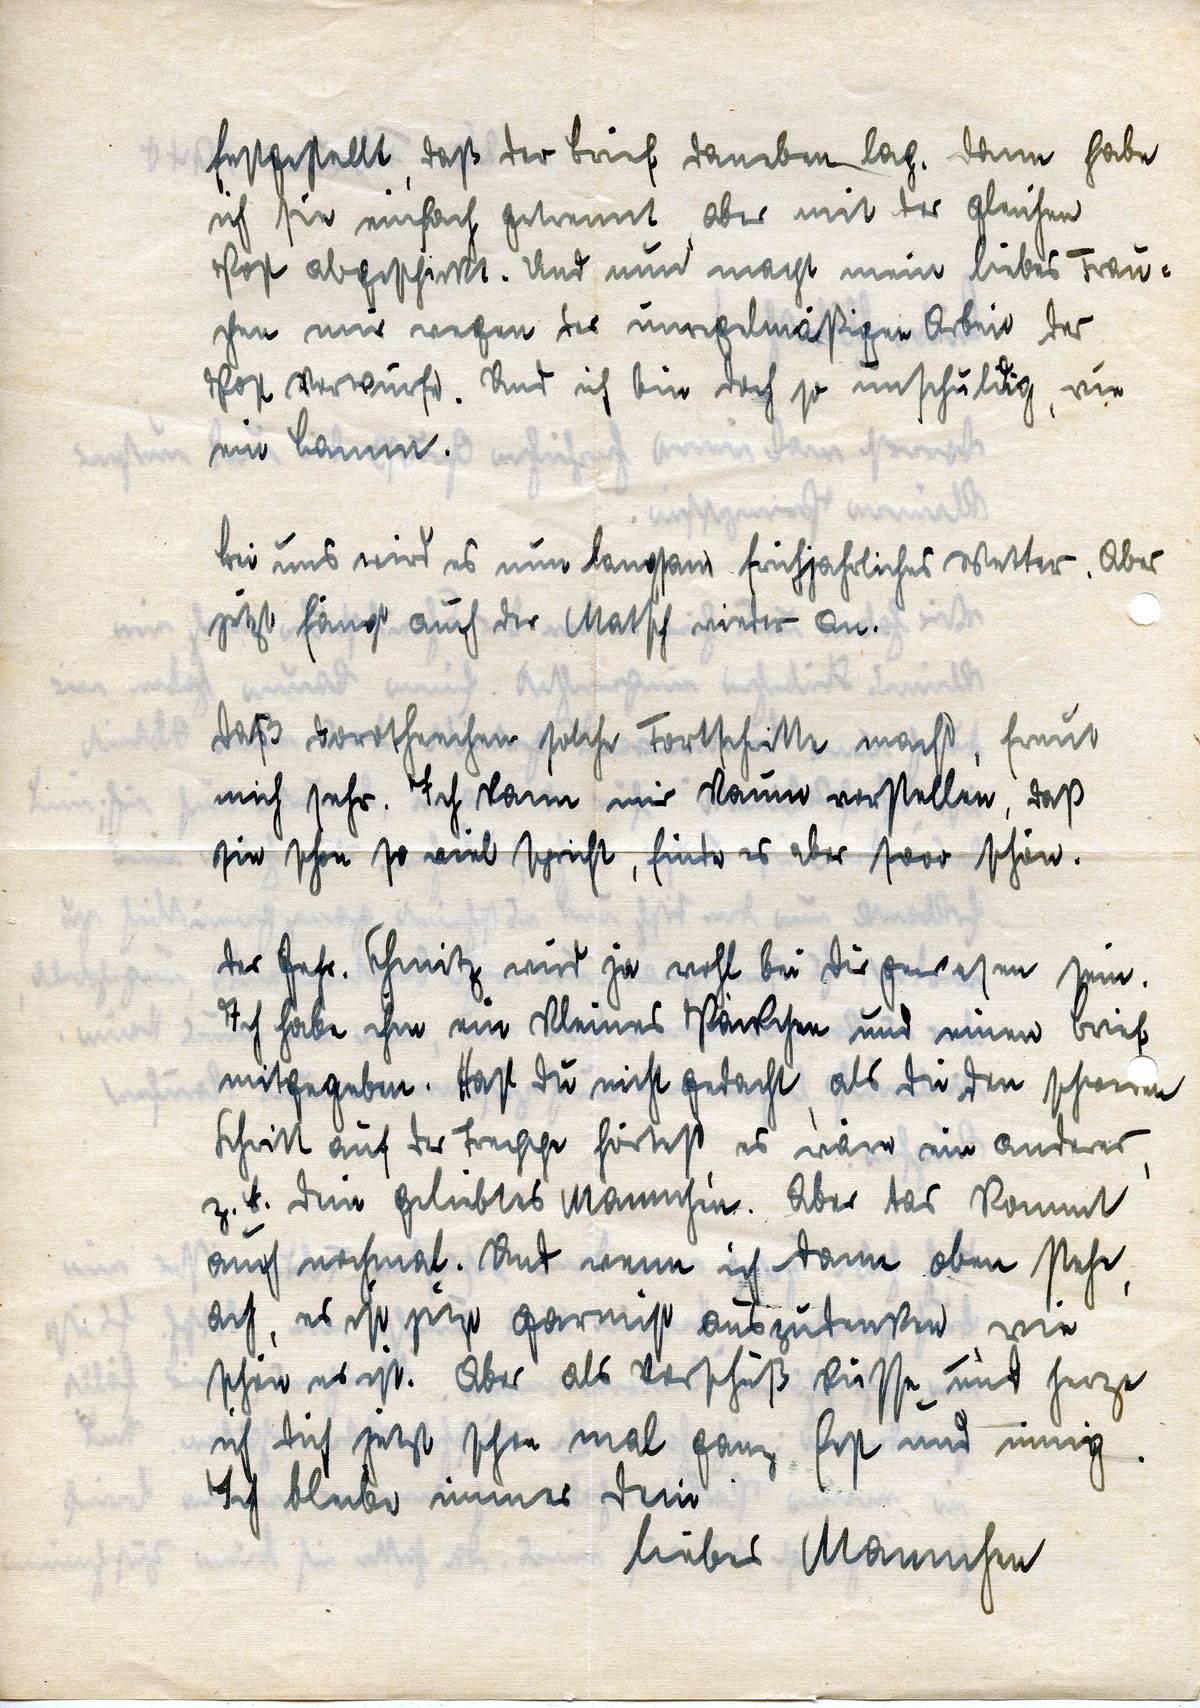 festgestellt, daß der Brief daneben lag. Dann habe
ich sie einfach getrennt, aber mit der gleichen
Post abgeschickt. Und nun macht mein liebes Frau-
chen mir wegen der unregelmäßigen Arbeit der
Post Vorwürfe. Und ich bin doch so unschuldig, wie
ein Lamm.
Bei uns wird es nun langsam frühjahrliches Wetter. Aber
jetzt fängt auch der Matsch wieder an.
Daß Dorotheechen solche Fortschritte macht, freut
mich sehr. Ich kann mir kaum vorstellen, daß
sie schon so viel spricht, finde es aber sooo schön.
Der Gefr. Schmitz wird ja wohl bei Dir gewesen sein.
Ich habe ihm ein kleines Päckchen und einen Brief
mitgegeben. Hast Du nicht gedacht, als Du den schweren
Schritt auf der Treppe hörtest, es wäre ein anderer,
z.B. Dein geliebtes Mannchen. Aber das kommt
auch nochmal. Und wenn ich dann oben stehe,
ach, es ist jetzt garnicht auszudenken, wie
schön es ist. Aber als Vorschuß küsse und herze
ich Dich jetzt schon mal ganz fest und innig.
Ich bleibe immer Dein
liebes Mannchen